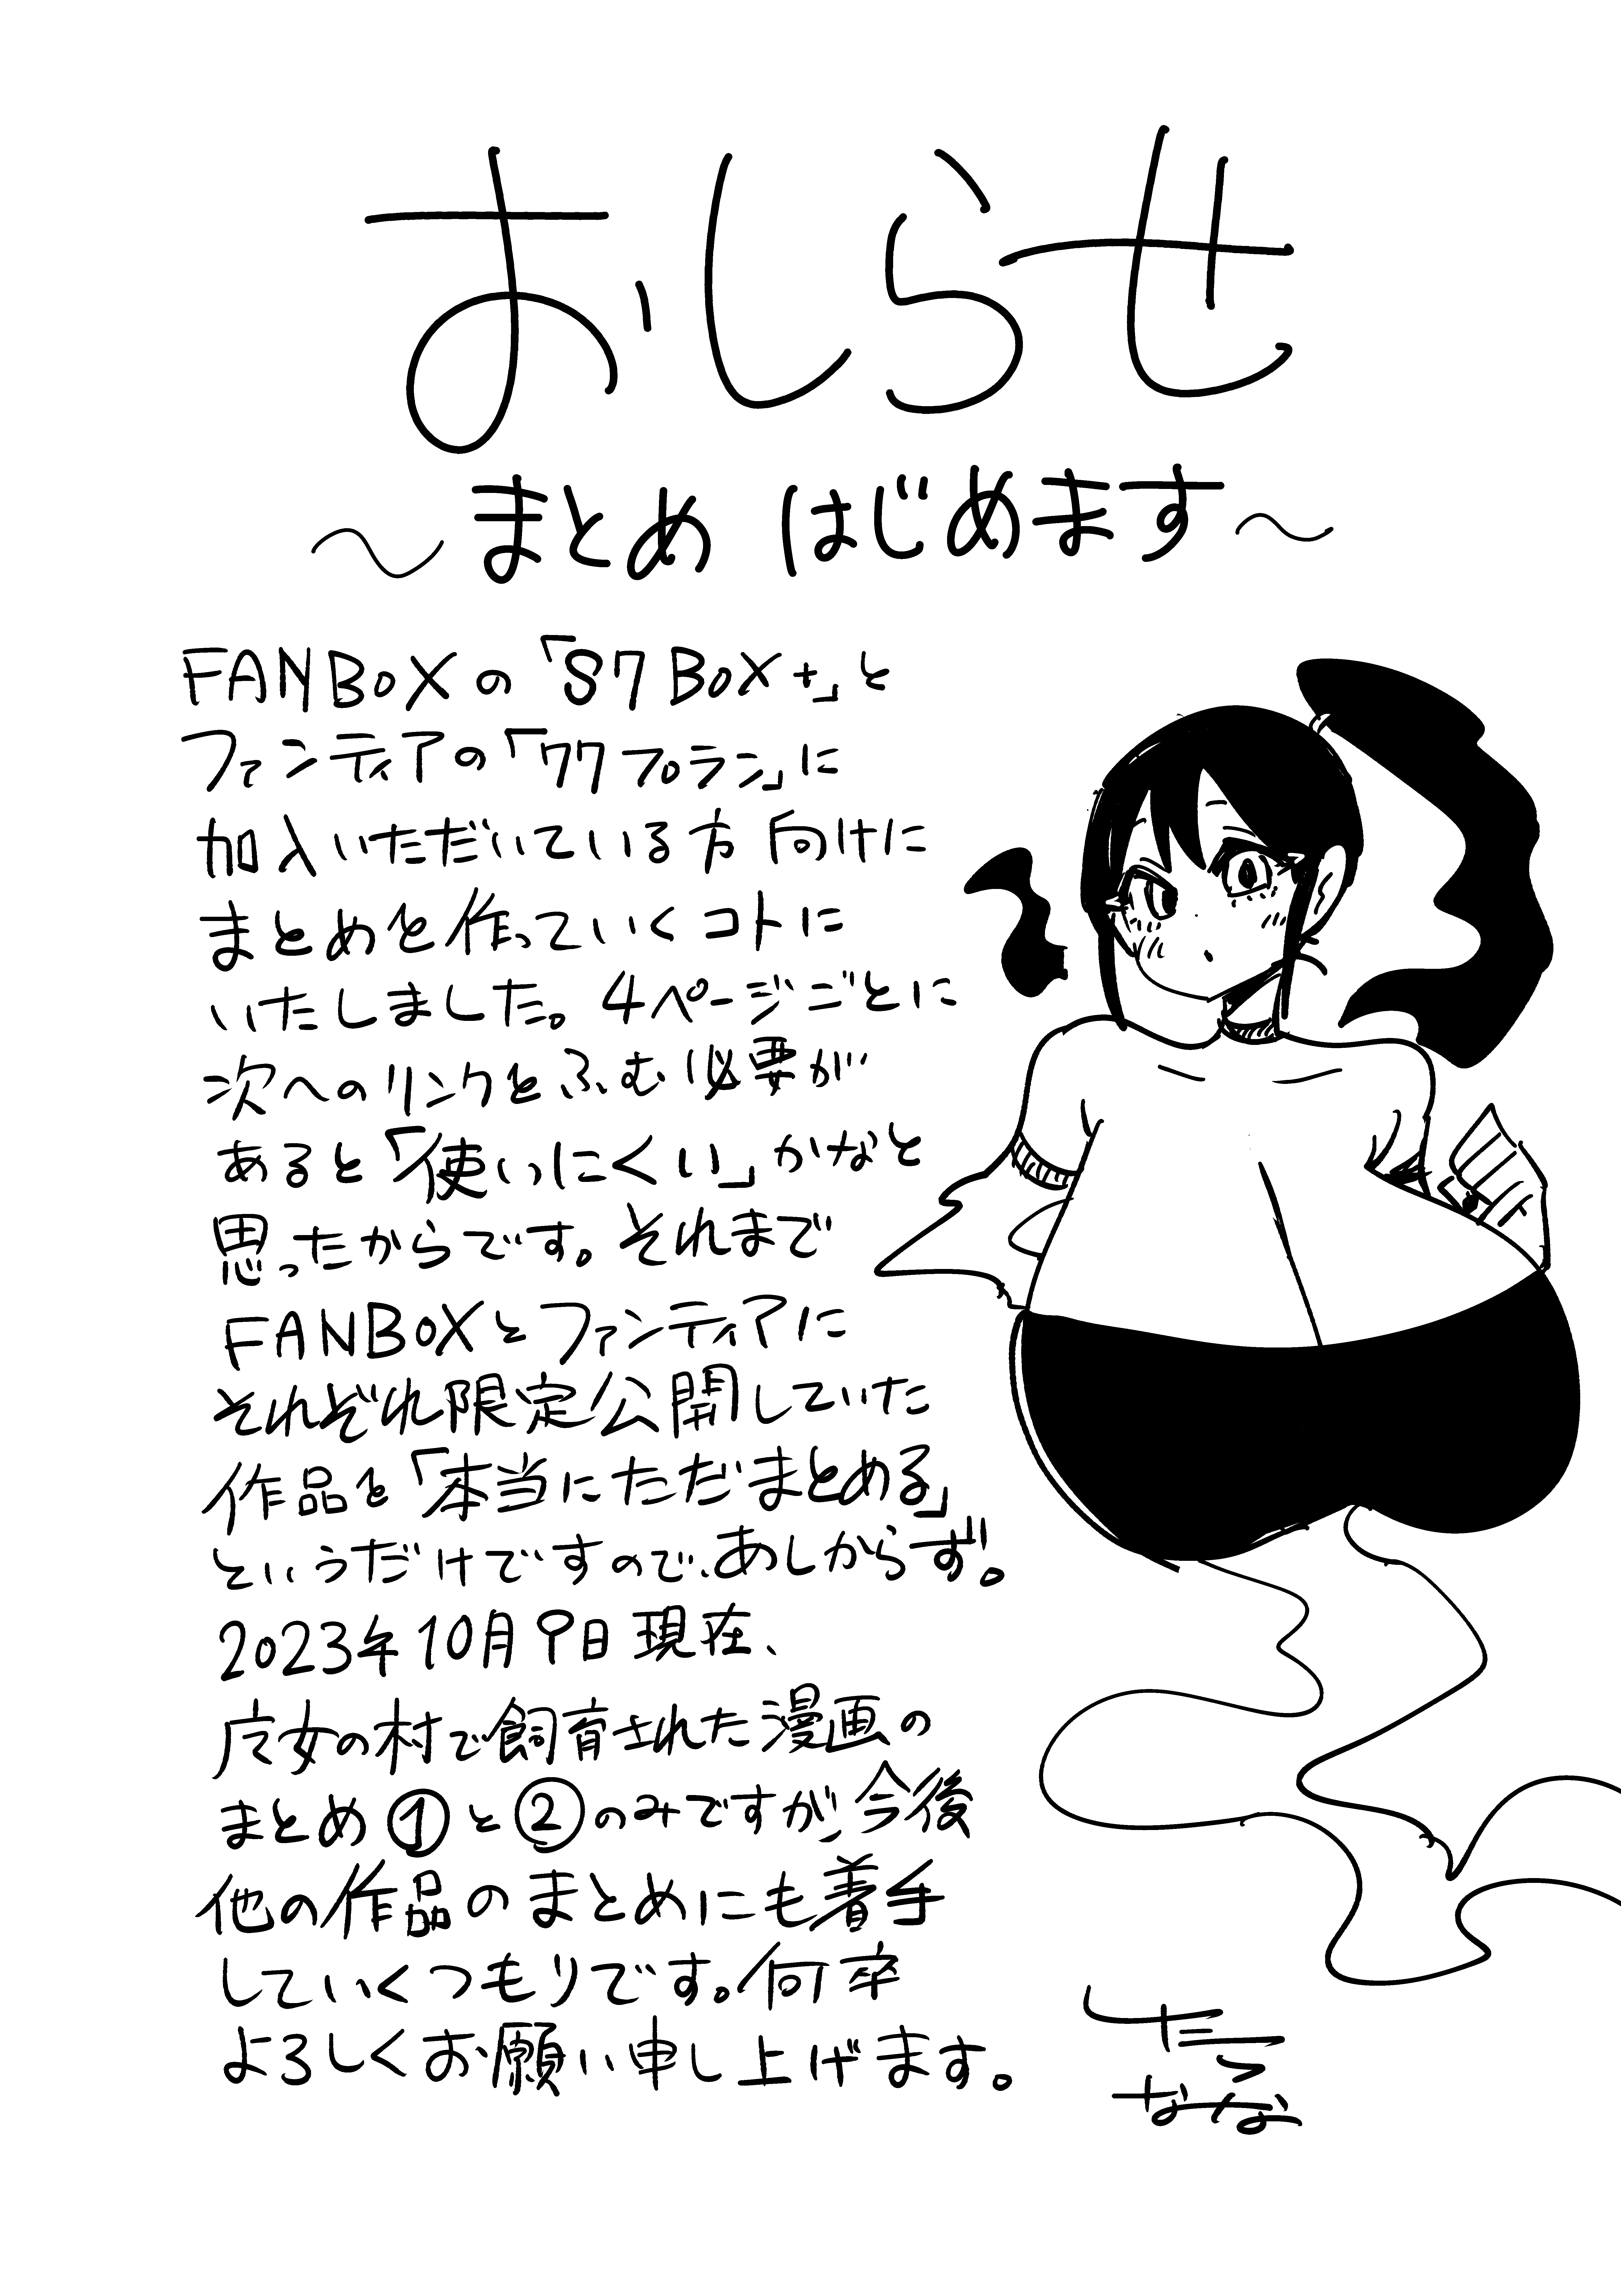 おしらせ
〜まとめ はじめます〜
FANBOXの「87BOX+」と
ファンティアの「77プラン」に
加入いただいている方向けに
まとめを作っていくコトに
いたしました。4ページごとに
次へのリンクをふむ必要が
あると「使いにくい」かなと
思ったからです。それまで
FANBOXとファンティアに
それぞれ限定公開していた
作品を「本当にただまとめる」
というだけですので、あしからず。
2023年10月9日現在、
女の村で飼育された漫画の
まとめ①と②のみですが、今後
他の作品のまとめにも着手
していくつもりです。何卒
よろしくお願い申し上げます。
なな